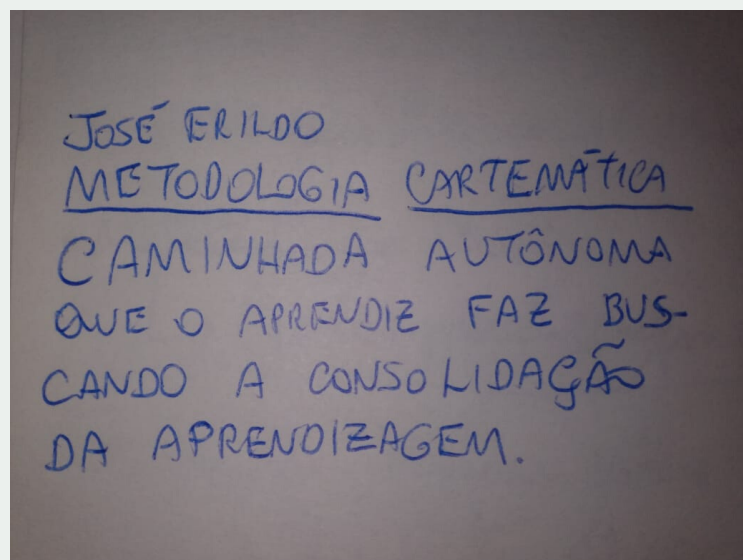 JOSÉ ERILDO
METODOLOGIA CARTEMÁTICA
CAMINHADA AUTÔNOMA
QUE O APRENDIZ FAZ BUS-
CANDO A CONSOLIDAÇÃO
DA APRENDIZAGEM.